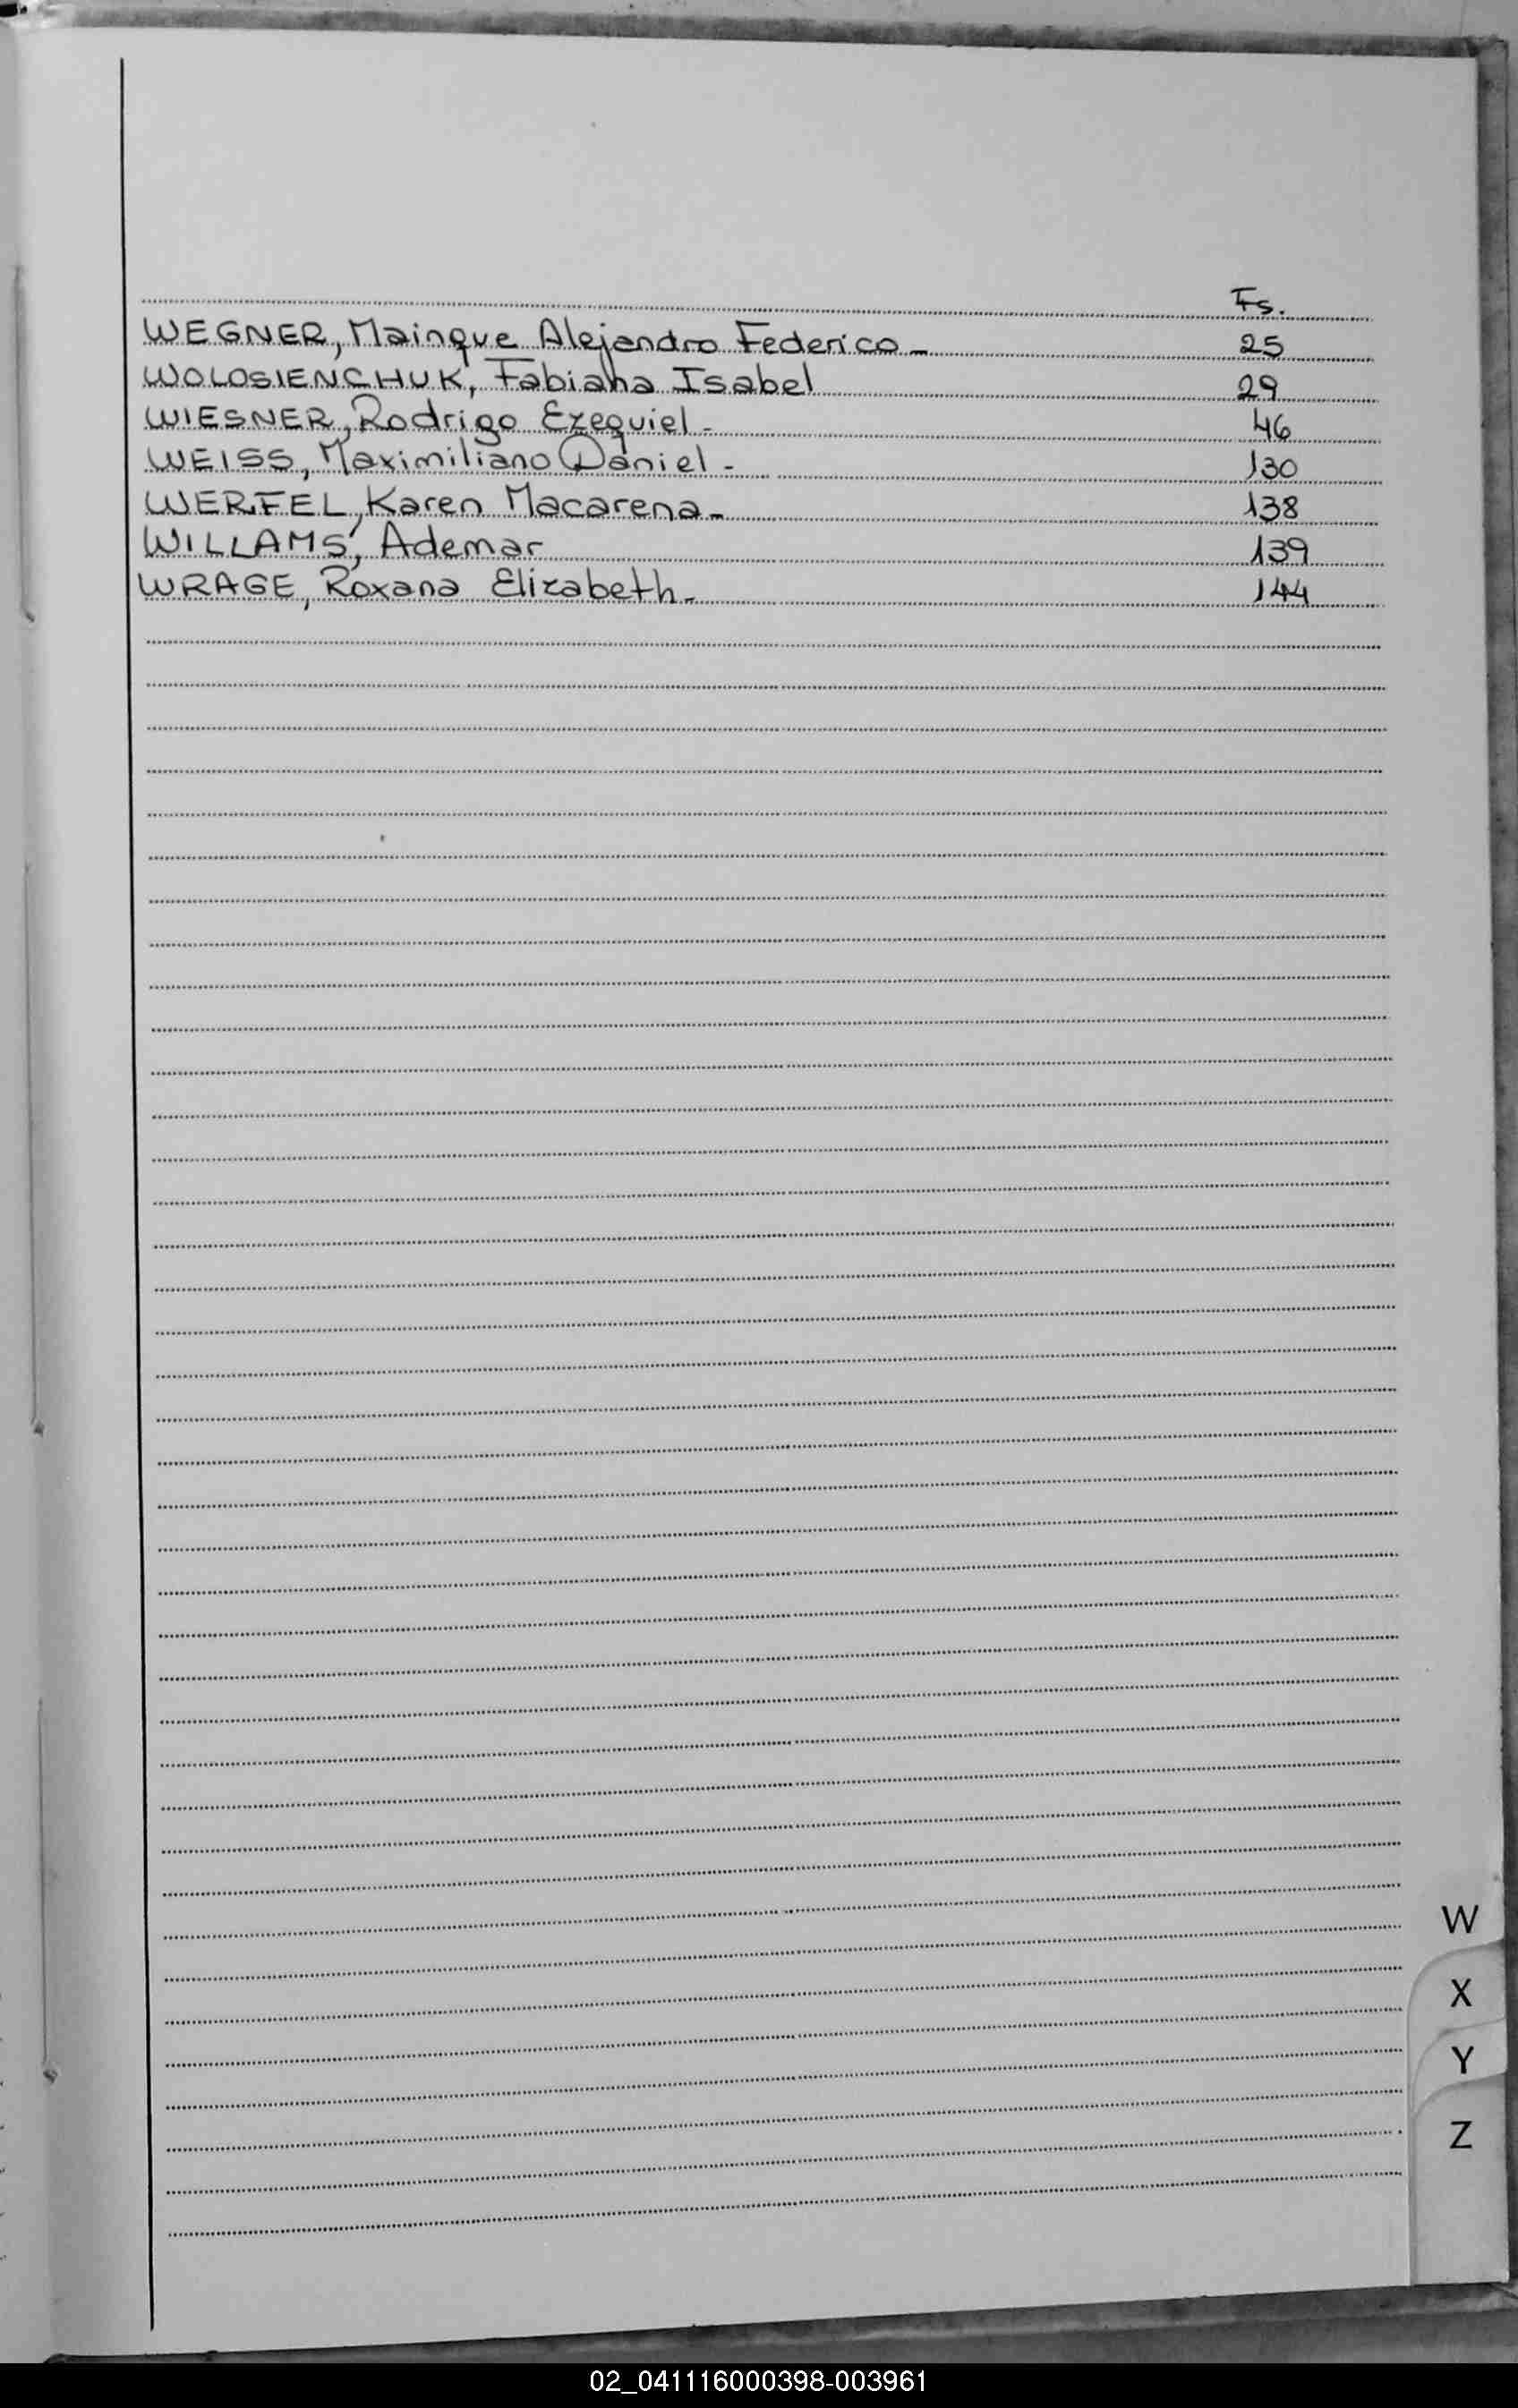 Fs.
WEGNER, Mainque Alejandro Federico - 25
WOLOSIENCHUK, Fabiana Isabel 29
WIESNER, Rodrigo Ezequiel - 46
WEISS, Maximiliano Daniel - 130
WERFEL, Karen Macarena - 138
WILLAMS, Ademar 139
WRAGE, Roxana Elizabeth - 144
W
X
Y
Z
02_041116000398-003961